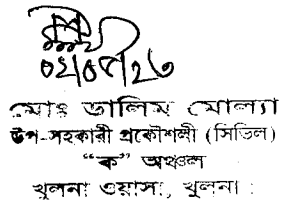 ০২/০৫/২৩
মোঃ ডালিম মোল্যা
উপ-সহকারী প্রকৌশলী (সিভিল)
“ক” অঞ্চল
খুলনা ওয়াসা, খুলনা।